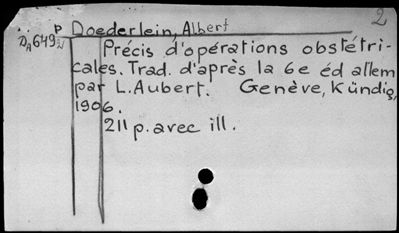 2
P Doederlein, Albert
DA649
Précis d'opérations obstétri-
cales. Trad. d'après la 6e éd allem
par L. Aubert. Genève, Kündig,
1906.
211 p. avec ill.